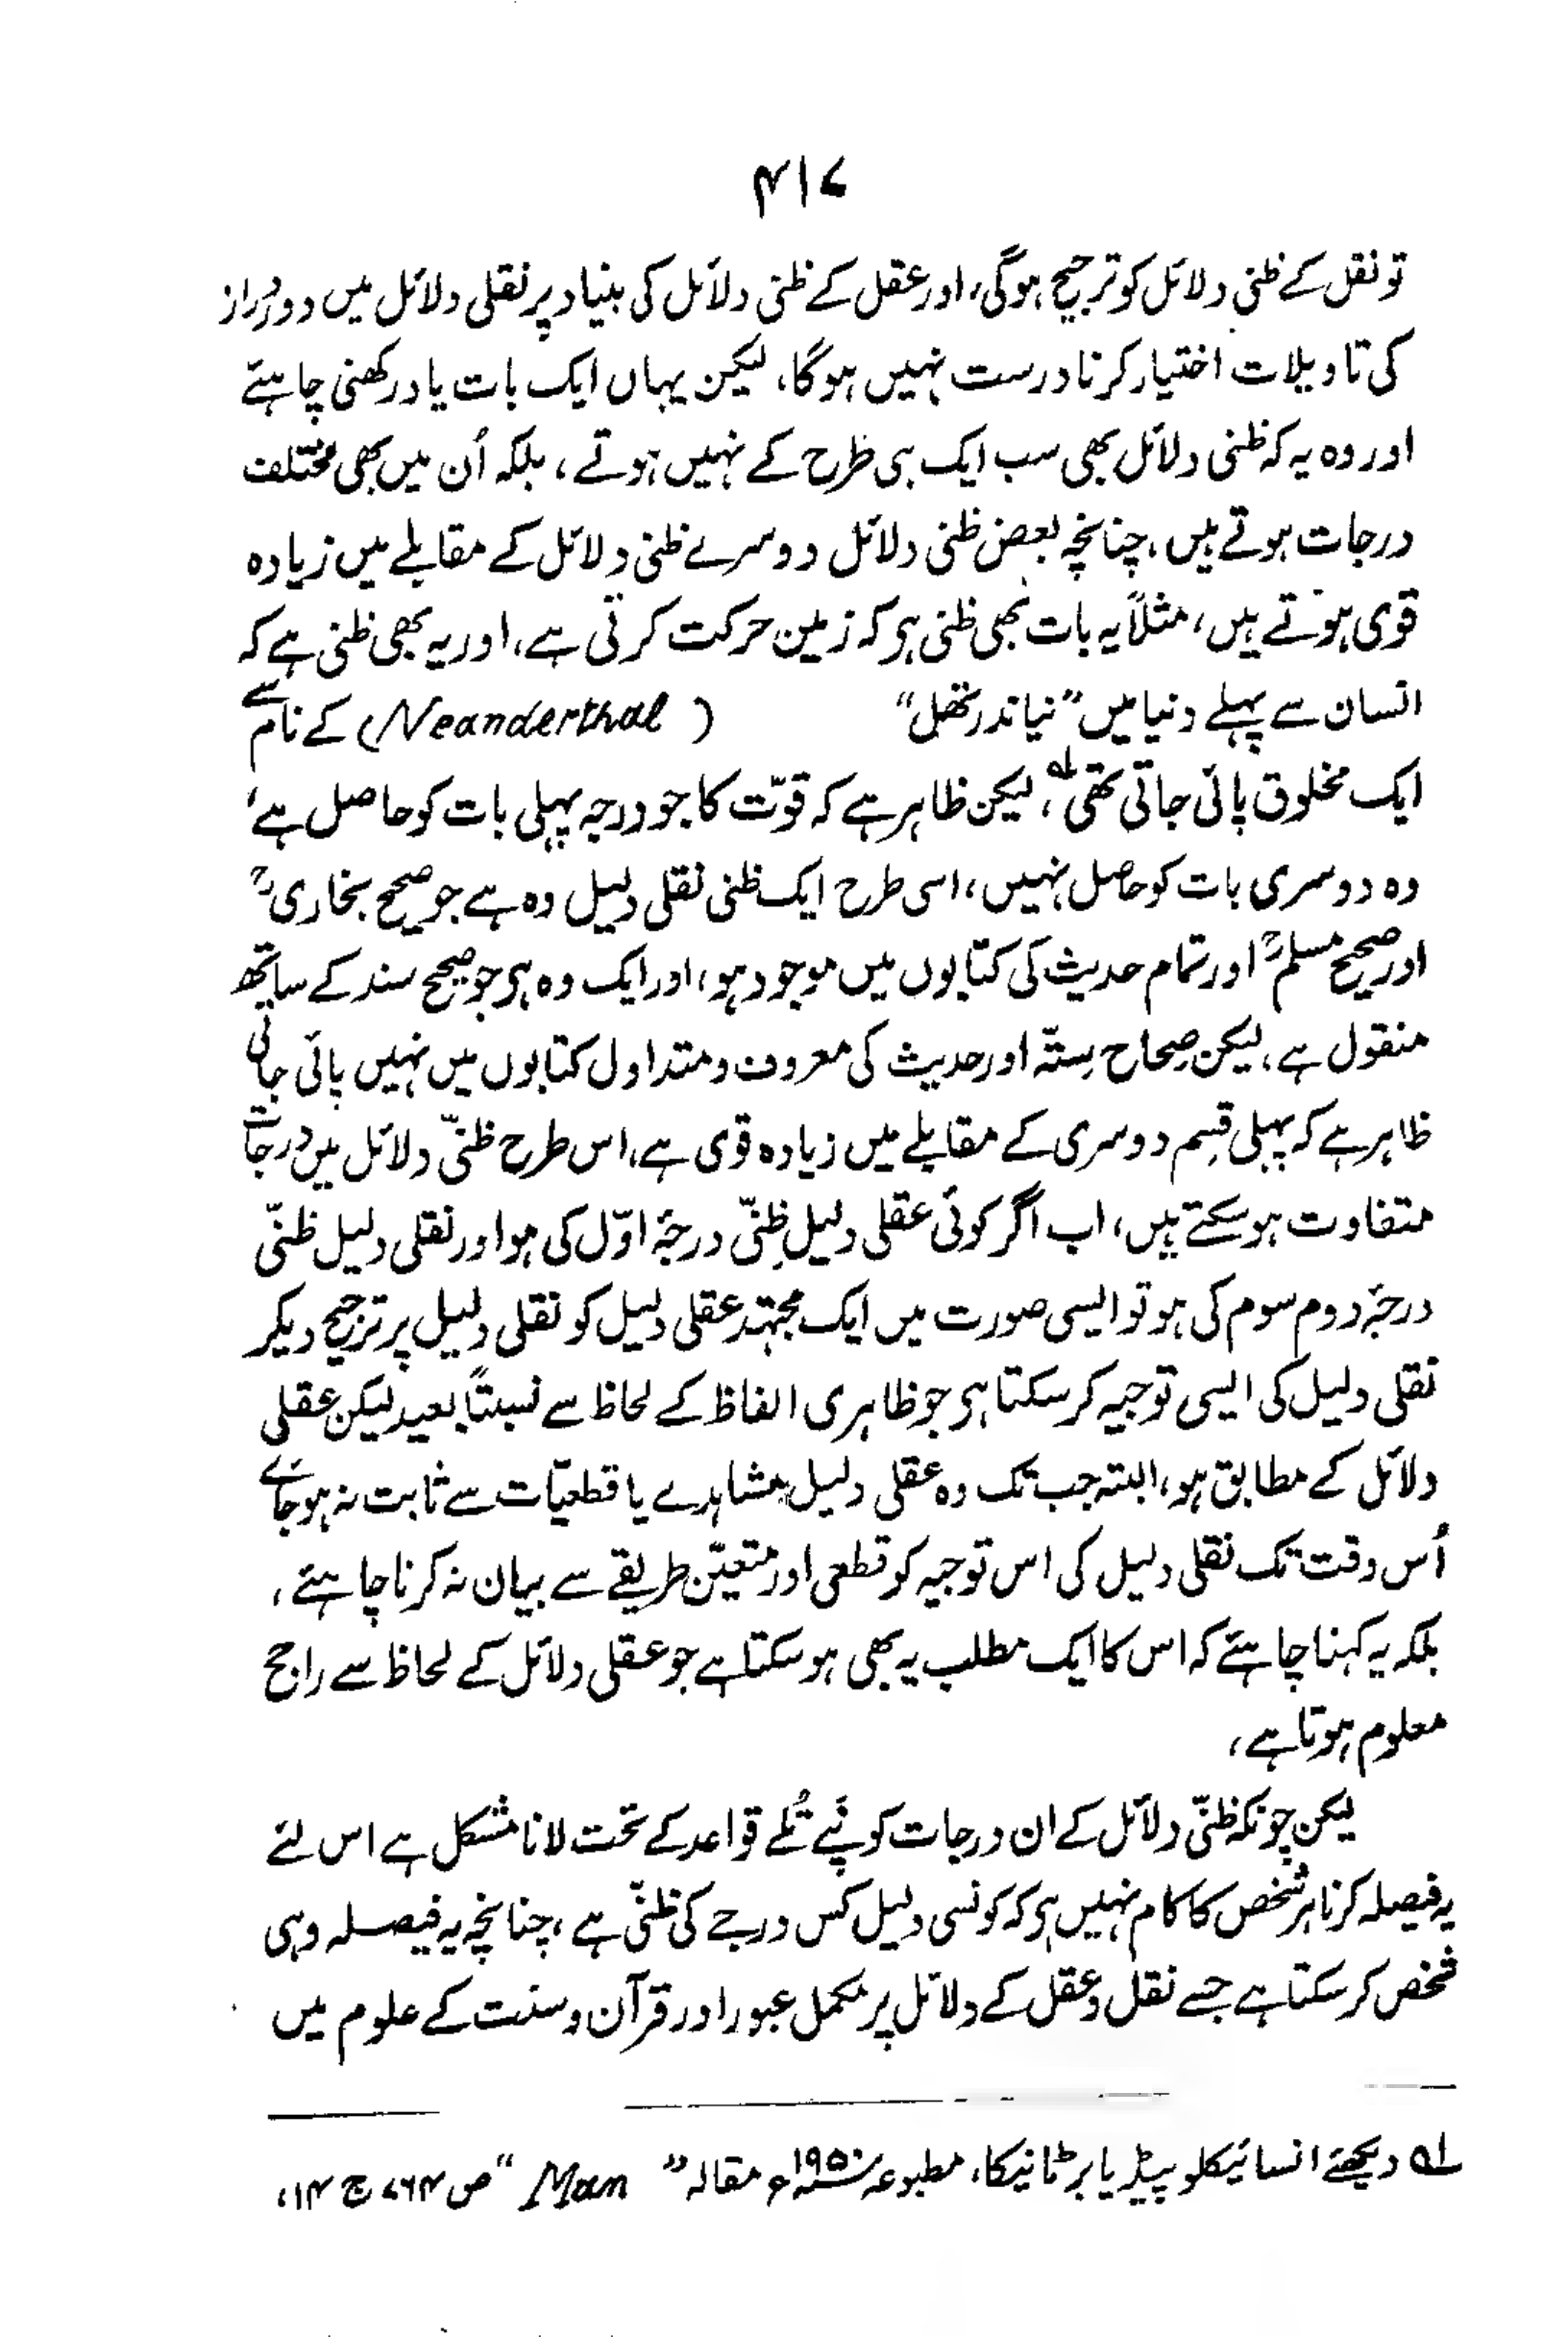 ۴۱۷
تو نقل کے ظنی دلائل کو ترجیح ہوگی، اور عقل کے ظنی دلائل کی بنیاد پر نقلی دلائل میں دور دراز
کی تاویلات اختیار کرنا درست نہیں ہوگا، لیکن یہاں ایک بات یاد رکھنی چاہئے
اور وہ یہ کہ ظنی دلائل بھی سب ایک ہی طرح کے نہیں ہوتے، بلکہ اُن میں بھی مختلف
درجات ہوتے ہیں، چنانچہ بعض ظنی دلائل دوسرے ظنی دلائل کے مقابلے میں زیادہ
قوی ہوتے ہیں، مثلاً یہ بات بھی ظنی ہی کہ زمین حرکت کرتی ہے، اور یہ بھی ظنی ہے کہ
انسان سے پہلے دنیا میں ”نیاندرتھل“ (Neanderthal) کے نام سے
ایک مخلوق پائی جاتی تھی لہ، لیکن ظاہر ہے کہ قوّت کا جو درجہ پہلی بات کو حاصل ہے،
وہ دوسری بات کو حاصل نہیں، اسی طرح ایک ظنی نقلی دلیل وہ ہے جو صحیح بخاریؒ
اور صحیح مسلمؒ اور تمام حدیث کی کتابوں میں موجود ہو، اور ایک وہ ہی جو صحیح سند کے ساتھ
منقول ہے، لیکن صِحاح سِتّہ اور حدیث کی معروف و متداول کتابوں میں نہیں پائی جاتی
ظاہر ہے کہ پہلی قِسم دوسری کے مقابلے میں زیادہ قوی ہے، اس طرح ظنّی دلائل میں درجات
متفاوت ہو سکتے ہیں، اب اگر کوئی عقلی دلیل ظِنّی درجۂ اوّل کی ہو اور نقلی دلیل ظنّی
درجۂ دوم سوم کی ہو تو ایسی صورت میں ایک مجتہد عقلی دلیل کو نقلی دلیل پر ترجیح دیکر
نقلی دلیل کی ایسی توجیہ کر سکتا ہی جو ظاہری الفاظ کے لحاظ سے نسبتاً بعید لیکن عقلی
دلائل کے مطابق ہو، البتہ جب تک وہ عقلی دلیل مشاہدے یا قطعیّات سے ثابت نہ ہو جائے
اُس وقت تک نقلی دلیل کی اس توجیہ کو قطعی اور متعیّن طریقے سے بیان نہ کرنا چاہئے،
بلکہ یہ کہنا چاہئے کہ اس کا ایک مطلب یہ بھی ہو سکتا ہے جو عقلی دلائل کے لحاظ سے راجح
معلوم ہوتا ہے،
لیکن چونکہ ظنّی دلائل کے ان درجات کو نَپے تُلے قواعد کے تحت لانا مشکل ہے اس لئے
یہ فیصلہ کرنا ہر شخص کا کام نہیں ہی کہ کونسی دلیل کس درجے کی ظنّی ہے، چنانچہ یہ فیصلہ وہی
شخص کر سکتا ہے جسے نقل و عقل کے دلائل پر مکمل عبور اور قرآن و سنت کے علوم میں
لہ دیکھئے انسائیکلوپیڈیا برٹانیکا، مطبوعہ ۱۹۵۰ء مقالہ ”Man“ ص ۷۶۴ ج ۱۴،